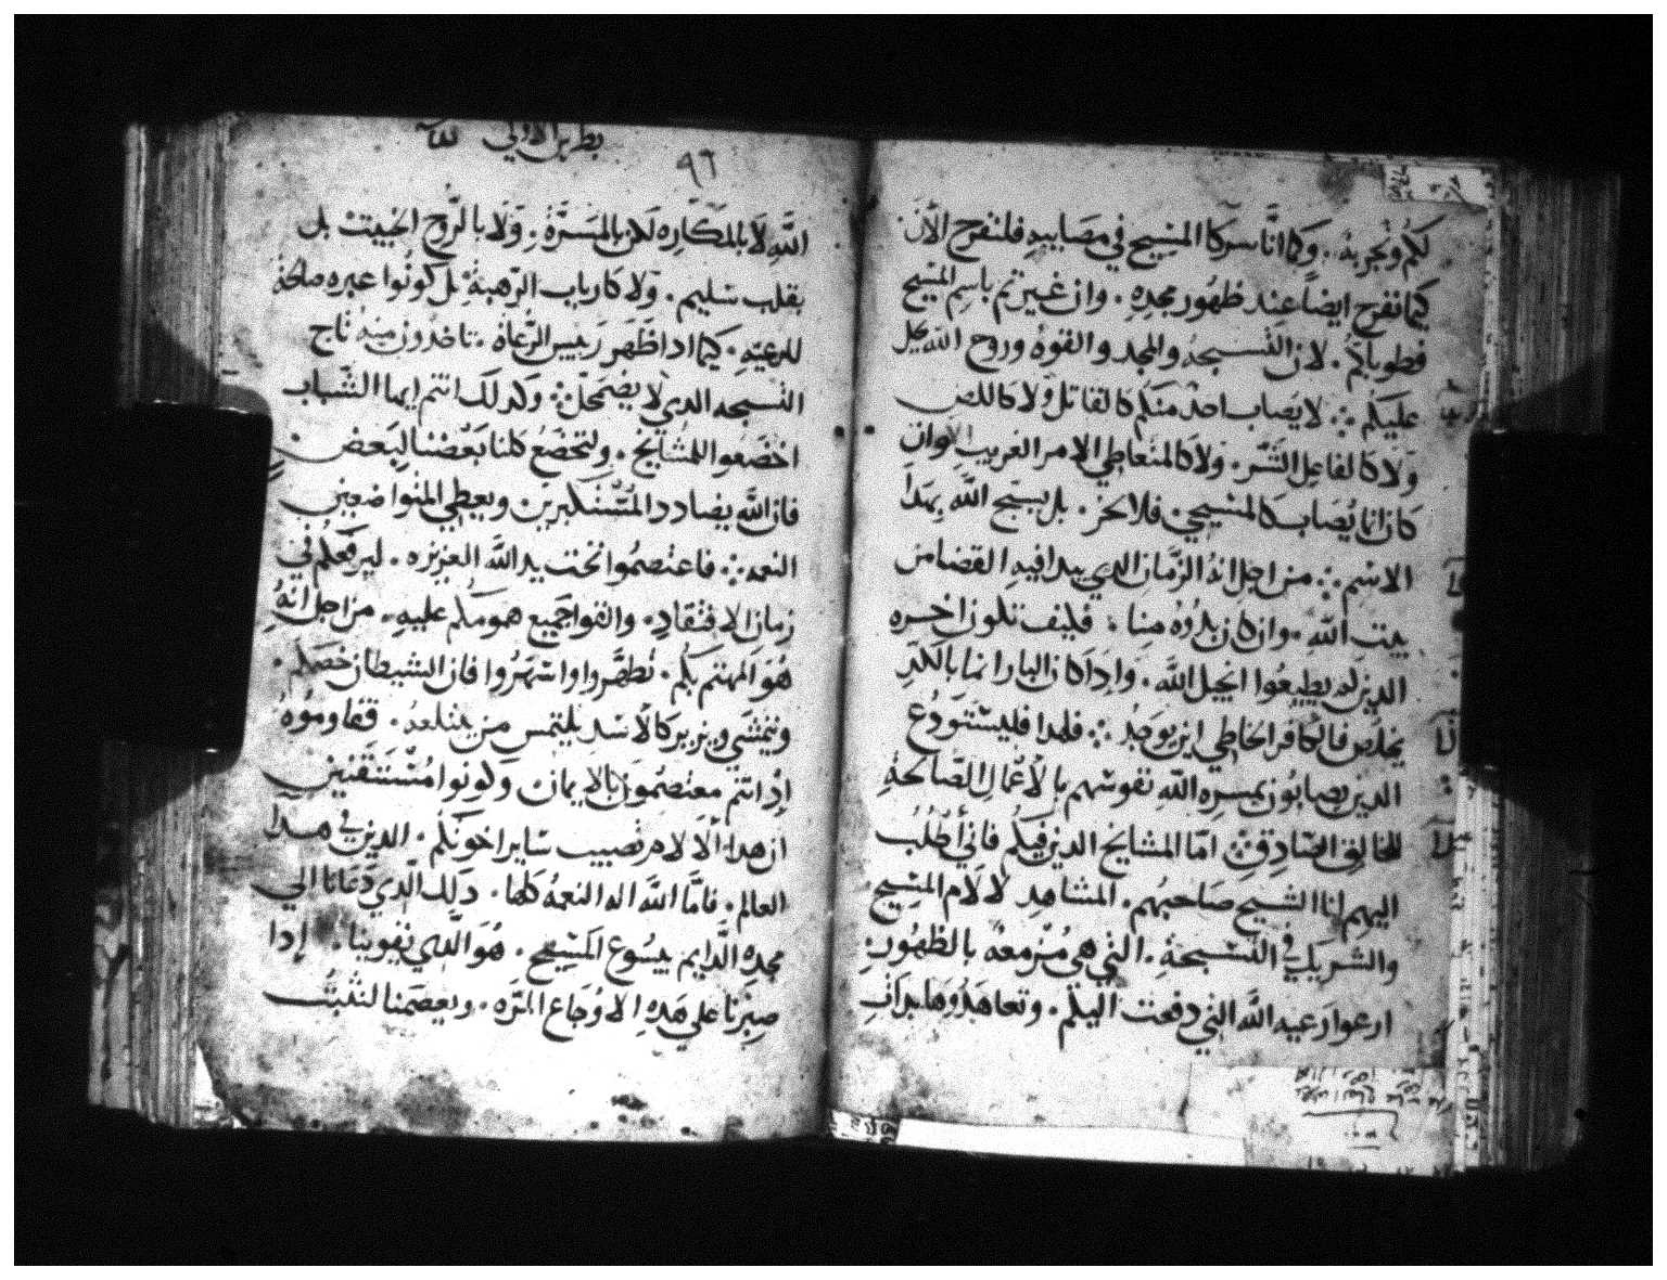 لكم وتجربه. وكما انا نشرك المسيح في مصايبه فلنفرح الان
كيما نفرح ايضاً عند ظهور مجده. وان عيرتم باسم المسيح
فطوباكم. لان التسبحه والمجد والقوه وروح الله يحل
عليكم ۞ لا يصاب احد منكم كالقاتل ولا كاللص
ولا كالفاعل الشر. ولا كالمتعاطي الامر الغريب وان
كان انما يصاب كالمسيحي فلا يخز. بل يسبح الله بهدا
الاسم ۞ من اجل انه الزمان الدي يبدا فيه القضا من
بيت الله. وان كان بدوه منا. فكيف تكون اخره
الدين لم يطيعوا انجيل الله. وادا كان البار انما بالكد
يخلص فالكافر الخاطي اين يوجد ۞ فلهدا فليستودع
الدين يصابون بمسره الله نفوسهم بالاعمال الصالحة
للخالق الصادق ۞ اما المشايخ الدين فيكم فاني أطلب
اليهم انا الشيخ صاحبهم. المشاهد لالام المسيح
والشريك في التسبحة. التي هي مزمعة بالظهور.
ارعوا رعيه الله التي دفعت اليكم. وتعاهدوها بدات
بطرس الاولى
٩٦
الله لا بالمكاره لكن بالمسرة. ولا بالروح الخبيث بل
بقلب سليم. ولا كارباب الرهبة بل كونوا عبره صالحة
للرعيه. كيما ادا ظهر رييس الرعاه. تاخدون منه تاج
التسبحه الدي لا يضمحل ۞ وكدلك انتم ايها الشباب
اخضعوا للمشايخ. ولتخضع كلنا بعضنا لبعض.
فان الله يضادد المستكبرين ويعطي المتواضعين
النعمه ۞ فاعتصموا تحت يد الله العزيزه. ليرفعكم في
زمان الافتقاد. والقوا جميع همومكم عليه. من اجل انه
هو المهتم بكم. تطهروا واسهروا فان الشيطان خصمكم.
ويتمشى ويزير كالاسد يلتمس من يبتلعه. فقاوموه
إد انتم معتصمون بالايمان وكونوا مستيقنين
ان هدا الالام تصيب ساير اخوتكم. الدين في هدا
العالم. فاما الله اله النعمه كلها. دلك الدي دعانا الي
مجده الدايم بيسوع المسيح. هو الدي يقوينا. إدا
صبرنا علي هده الاوجاع المره. ويعصمنا لنثبت